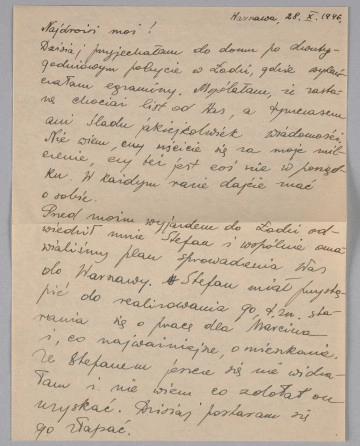 Warszawa, 28. X. 1946.
Najdrożsi moi!
Dzisiaj przyjechałam do domu po dwuty-
godniowym pobycie w Łodzi, gdzie zdawałam
egzaminy. Myślałam, że zasta-
nę chociaż list od Was, a tymczasem
ani śladu jakiejkolwiek wiadomości.
Nie wiem, czy mścicie się za moje mil-
czenie, czy też jest coś nie w porząd-
ku. W każdym razie dajcie znać
o sobie.
Przed moim wyjazdem do Łodzi od-
wiedził mnie Stefan i wspólnie oma-
wialiśmy plan sprowadzenia Was
do Warszawy. Stefan miał przystą-
pić do realizowania go t.zn. sta-
rania się o pracę dla Marcina
i, co najważniejsze, o mieszkanie.
Ze Stefanem jeszcze się nie widzia-
łam i nie wiem co zdołał on
uzyskać. Dzisiaj postaram się
go złapać.